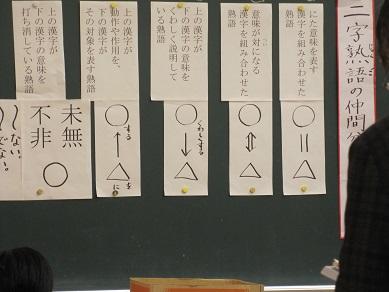 二字熟語の仲間分
にた意味を表す
漢字を組み合わせた
熟語
意味が対になる
漢字を組み合わせた
熟語
上の漢字が
下の漢字の意味を
くわしく説明して
いる熟語
くわしくする
上の漢字が
動作や作用を、
下の漢字が
その対象を表す
熟語
する
を
に
上の漢字が
下の漢字の意味を
打ち消している熟語
未無
不非
〜ない。
〜でない。